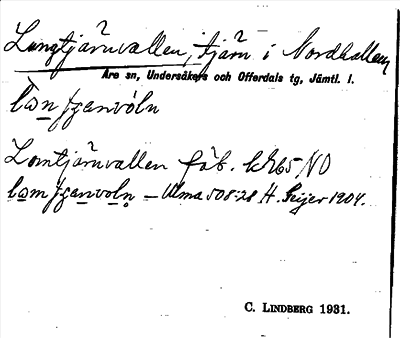 Lungtjärnvallen, tjärn i Nordhallen
Åre sn, Undersåkers och Offerdals tg, Jämtl. l.
Lomtjärnvallen fäb. kh65 NO
– Ulma 508:28 H. Geijer 1904.
C. LINDBERG 1931.